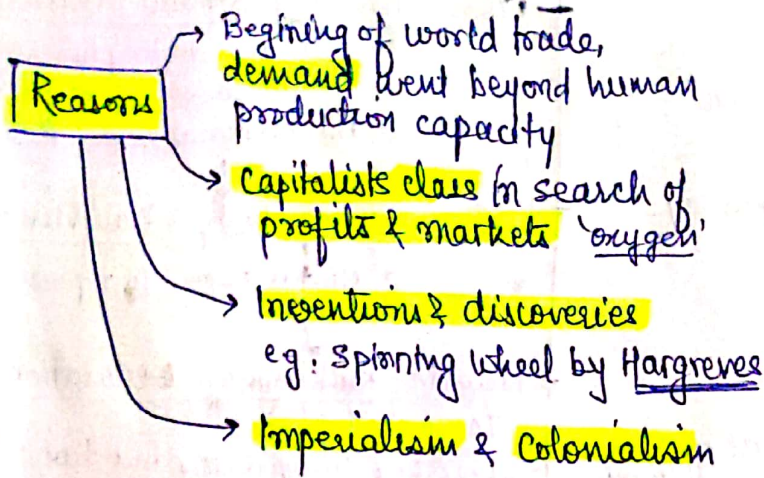 Reasons
Begining of world trade,
demand went beyond human
production capacity
Capitalists class in search of
profits & markets 'oxygen'
Inventions & discoveries
eg: Spinning wheel by Hargreves
Imperialism & Colonialism